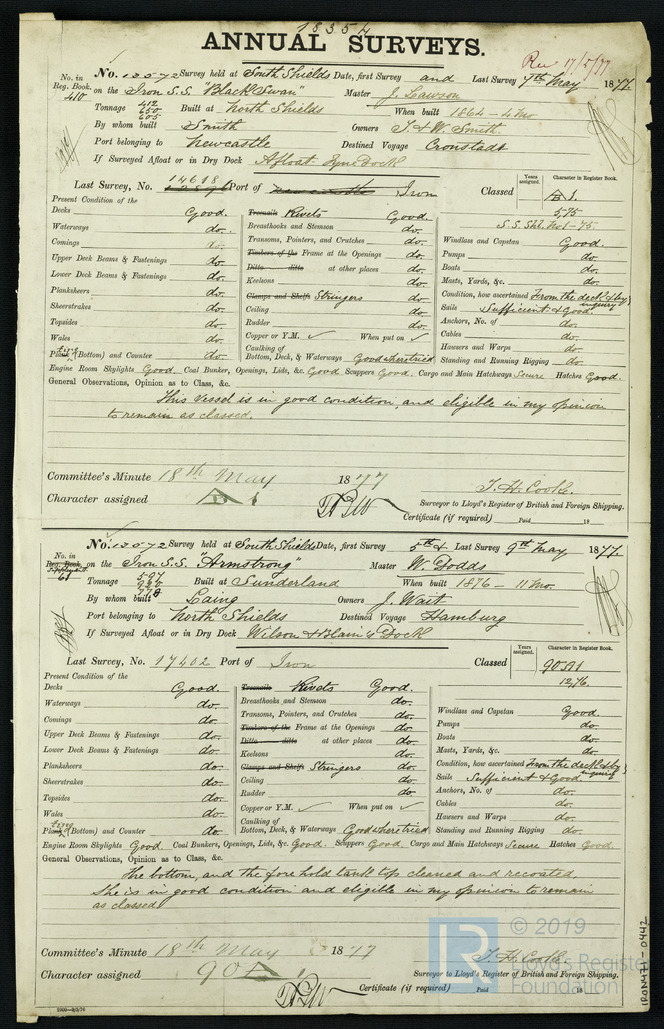 18354
ANNUAL SURVEYS.
Rec 17/5/77
No. 12572 Survey held at South Shields Date, first Survey and Last Survey 7th May 1877.
No. in Reg. Book. 410 on the Iron S.S. "Black Swan" Master J. Lawson
Tonnage 412 650 605 Built at North Shields When built 1864 - 4 mo
By whom built Smith Owners T. & W. Smith
Port belonging to Newcastle Destined Voyage Cronstadt
If Surveyed Afloat or in Dry Dock Afloat Tyne Dock
Last Survey, No. 14698 Port of Iron Classed
Years assigned. Character in Register Book.
A 1.
5,75
S.S. Shl. Feb - 75
Present Condition of the
Decks Good. Treenails Rivets Good.
Waterways do. Breasthooks and Stemson do.
Comings do. Transoms, Pointers, and Crutches do. Windlass and Capstan Good.
Upper Deck Beams & Fastenings do. Timbers of the Frame at the Openings do. Pumps do.
Lower Deck Beams & Fastenings do. Ditto ditto at other places do. Boats do.
Keelsons do. Masts, Yards, &c. do.
Planksheers do. Clamps and Shelfs Stringers do. Condition, how ascertained From the deck & by inquiry
Sheerstrakes do. Ceiling do. Sails Sufficient & Good
Topsides do. Rudder do. Anchors, No. of do.
Wales do. Copper or Y.M. ✓ When put on ✓ Cables do.
Plank (Bottom) and Counter do. Caulking of Bottom, Deck, & Waterways Good where tried Hawsers and Warps do.
Standing and Running Rigging do.
Engine Room Skylights Good. Coal Bunker, Openings, Lids, &c. Good Scuppers Good. Cargo and Main Hatchways Secure Hatches Good.
General Observations, Opinion as to Class, &c.
This Vessel is in good condition, and eligible in my opinion
to remain as classed.
Committee's Minute 18th May 1877
Character assigned A 1
T. H. Cooke.
Surveyor to Lloyd's Register of British and Foreign Shipping.
Certificate (if required) Paid 18
No. 12572 Survey held at South Shields Date, first Survey 5th & Last Survey 9th May 1877.
No. in Reg. Book. 61 on the Iron S.S. "Armstrong" Master W. Dodds
Tonnage Built at Sunderland When built 1876 - 11 mo.
By whom built Laing Owners J. Wait
Port belonging to North Shields Destined Voyage Hamburg
If Surveyed Afloat or in Dry Dock Wilson & Blain's Dock
Last Survey, No. 17402 Port of Iron Classed
Years assigned. Character in Register Book.
90 A1
12,76.
Present Condition of the
Decks Good. Treenails Rivets Good.
Waterways do. Breasthooks and Stemson do.
Comings do. Transoms, Pointers, and Crutches do. Windlass and Capstan Good.
Upper Deck Beams & Fastenings do. Timbers of the Frame at the Openings do. Pumps do.
Lower Deck Beams & Fastenings do. Ditto ditto at other places do. Boats do.
Keelsons do. Masts, Yards, &c. do.
Planksheers do. Clamps and Shelfs Stringers do. Condition, how ascertained From the deck & by inquiry
Sheerstrakes do. Ceiling do. Sails Sufficient & Good
Topsides do. Rudder do. Anchors, No. of do.
Wales do. Copper or Y.M. ✓ When put on ✓ Cables do.
Plank (Bottom) and Counter do. Caulking of Bottom, Deck, & Waterways Good where tried Hawsers and Warps do.
Standing and Running Rigging do.
Engine Room Skylights Good Coal Bunkers, Openings, Lids, &c. Good. Scuppers Good. Cargo and Main Hatchways Secure Hatches Good
General Observations, Opinion as to Class, &c.
The bottom, and the fore hold tank tops cleaned and recoated.
She is in good condition and eligible in my opinion to remain
as classed.
Committee's Minute 18th May 1877
Character assigned 90 A 1
T. H. Cooke
Surveyor to Lloyd's Register of British and Foreign Shipping.
Certificate (if required) Paid 18
© 2019
Lloyd's Register
Foundation
IRON471-0442